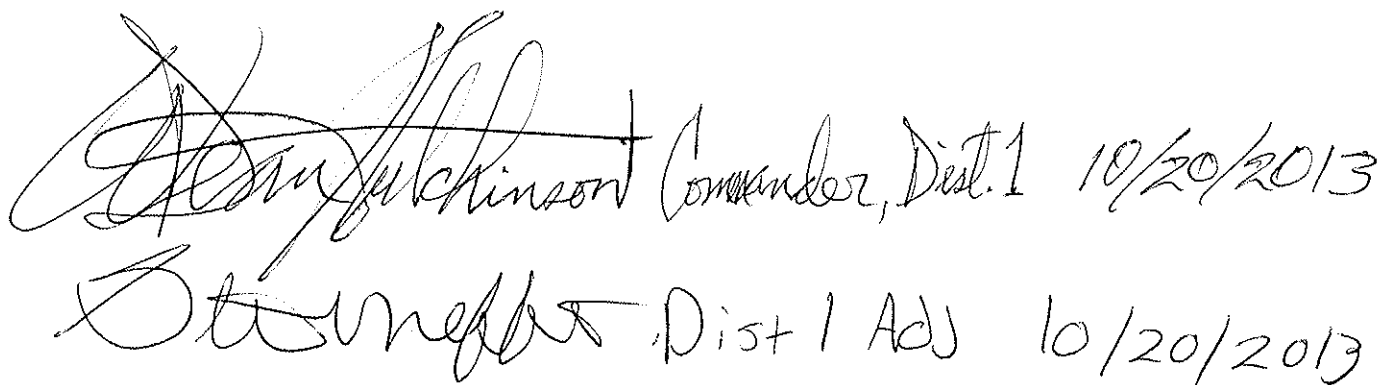 Hutchinson Commander, Dist. 1 10/20/2013
Dist 1 Adj 10/20/2013